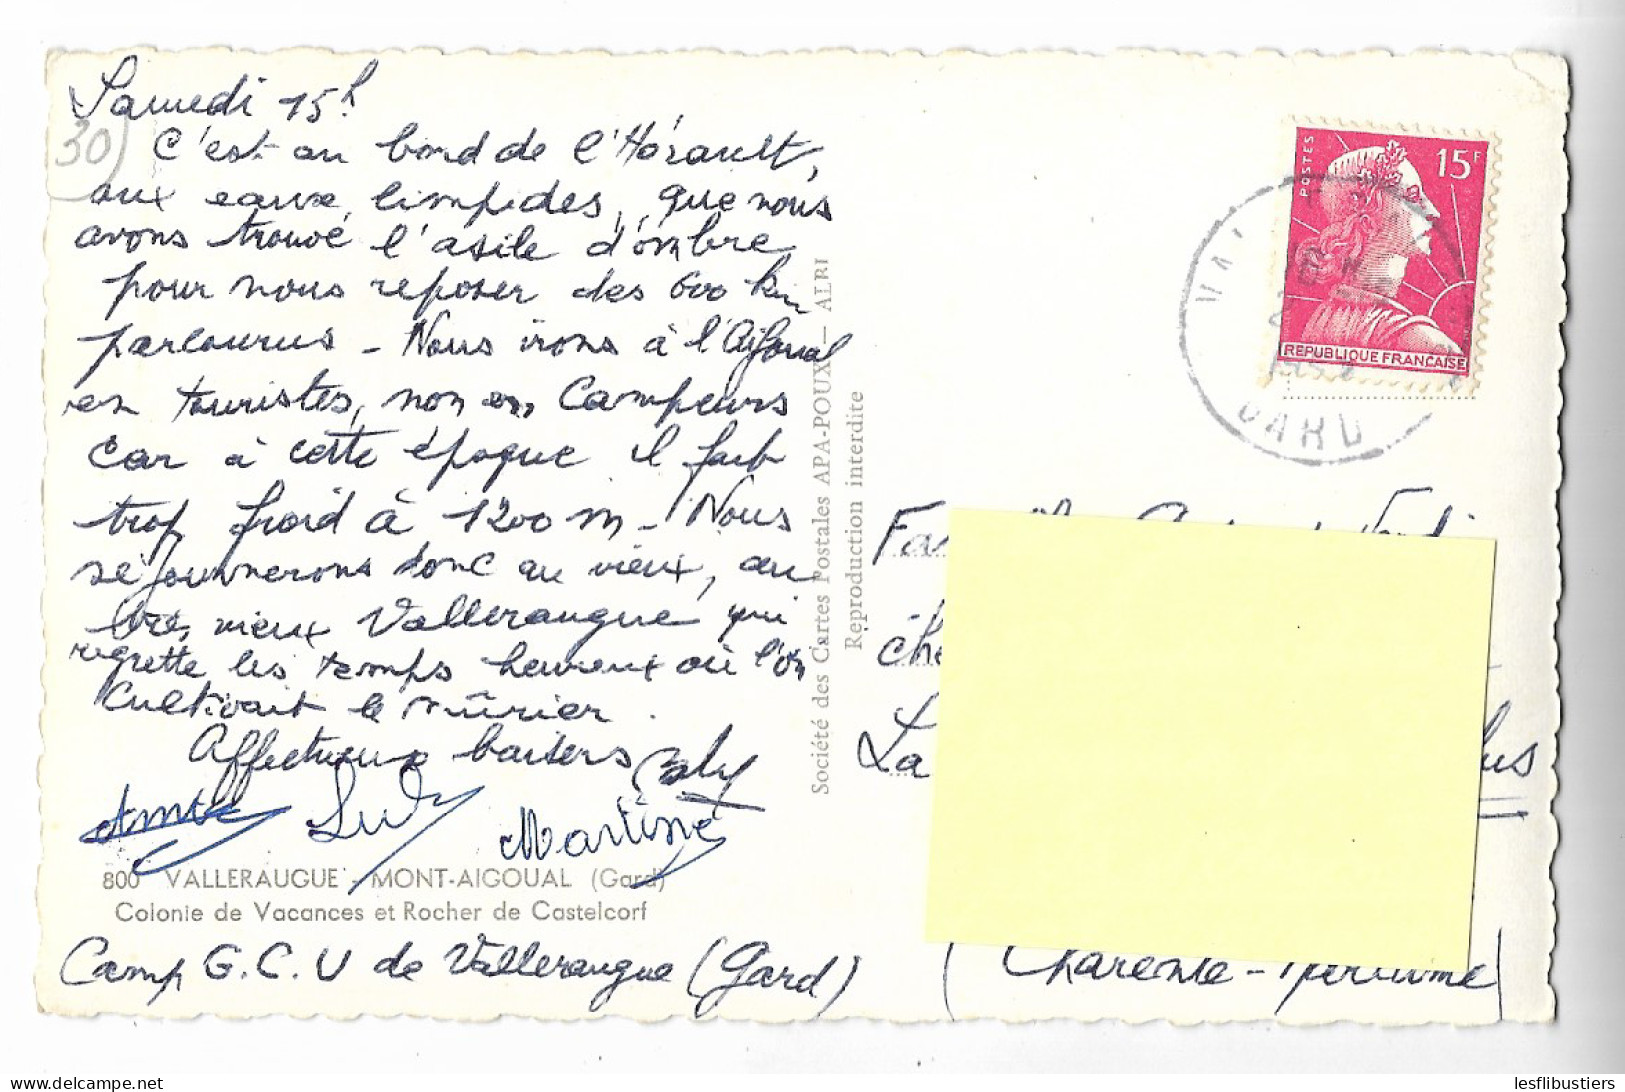 Samedi 15h
30)
C'est au bord de l'Hérault,
aux eaux limpides, que nous
avons trouvé l'asile d'ombre
pour nous reposer des 600 km
parcourus - Nous irons à l'Aigoual
en touristes, non en Campeurs
car à cette époque il fait
trop froid à 1200 m - Nous
séjournerons donc au vieux, au
très vieux Valleraugue qui
regrette les temps heureux où l'on
cultivait le mûrier.
Affectueux baisers
Martine
800 VALLERAUGUE - MONT-AIGOUAL (Gard)
Colonie de Vacances et Rocher de Castelcorf
Camp G.C.U de Valleraugue (Gard)
Société des Cartes Postales APA-POUX - ALBI
Reproduction interdite
POSTES
15F
REPUBLIQUE FRANÇAISE
GARD
La
(Charente-Maritime)
lesflibustiers